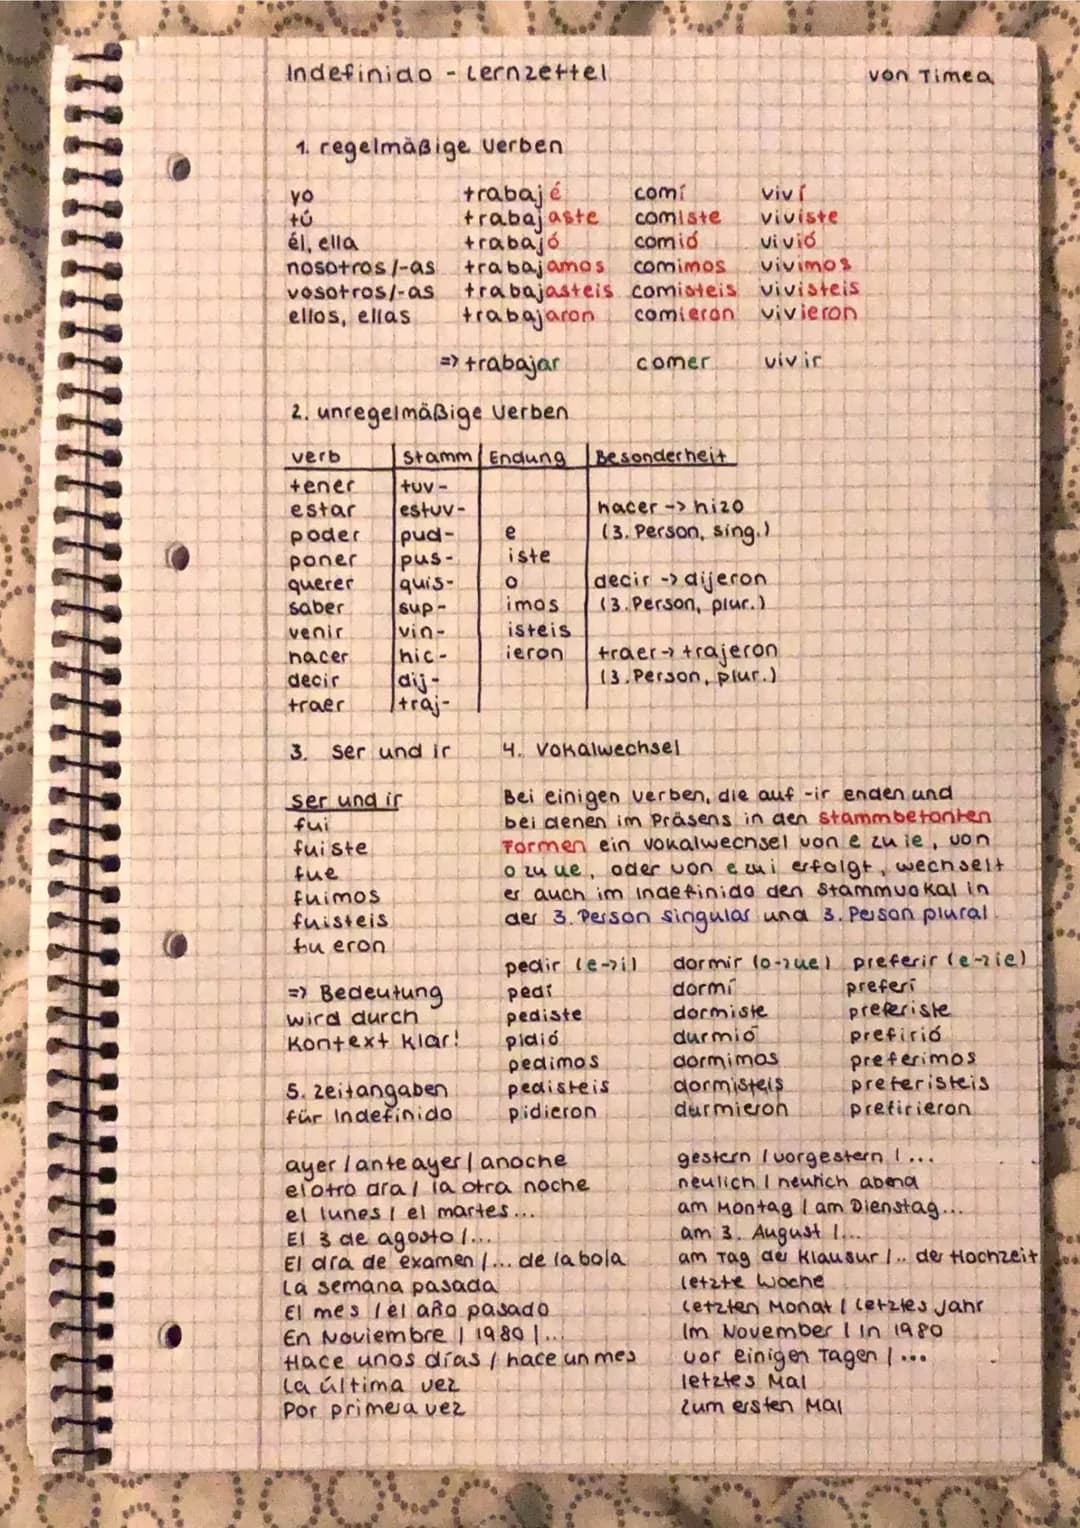 Indefinido - Lernzettel von Timea
1. regelmäßige Verben
yo trabajé comí viví
tú trabajaste comiste viviste
él, ella trabajó comió vivió
nosotros/-as trabajamos comimos vivimos
vosotros/-as trabajasteis comisteis vivisteis
ellos, ellas trabajaron comieron vivieron
=> trabajar comer vivir
2. unregelmäßige Verben
verb Stamm Endung Besonderheit
tener tuv-
estar estuv- hacer -> hizo
poder pud- e (3. Person, sing.)
poner pus- iste
querer quis- o decir -> dijeron
saber sup- imos (3. Person, plur.)
venir vin- isteis
hacer hic- ieron traer -> trajeron
decir dij- (3. Person, plur.)
traer traj-
3. ser und ir 4. Vokalwechsel
ser und ir Bei einigen Verben, die auf -ir enden und
fui bei denen im Präsens in den stammbetonten
fuiste Formen ein Vokalwechsel von e zu ie, von
fue o zu ue, oder von e zu i erfolgt, wechselt
fuimos er auch im Indefinido den Stammvokal in
fuisteis der 3. Person singular und 3. Person plural.
fueron
pedir (e->i) dormir (o->ue) preferir (e->ie)
=> Bedeutung pedí dormí preferí
wird durch pediste dormiste preferiste
Kontext klar! pidió durmió prefirió
pedimos dormimos preferimos
5. Zeitangaben pedisteis dormisteis preferisteis
für Indefinido pidieron durmieron prefirieron
ayer / ante ayer / anoche gestern / vorgestern / ...
el otro día / la otra noche neulich / neulich abend
el lunes / el martes ... am Montag / am Dienstag...
El 3 de agosto /... am 3. August /...
El día de examen /... de la bola am Tag der Klausur /.. der Hochzeit
La semana pasada letzte Woche
El mes / el año pasado Letzten Monat / Letztes Jahr
En Noviembre / 1980 /... Im November / In 1980
Hace unos días / hace un mes vor einigen Tagen / ...
La última vez letztes Mal
Por primera vez zum ersten Mal